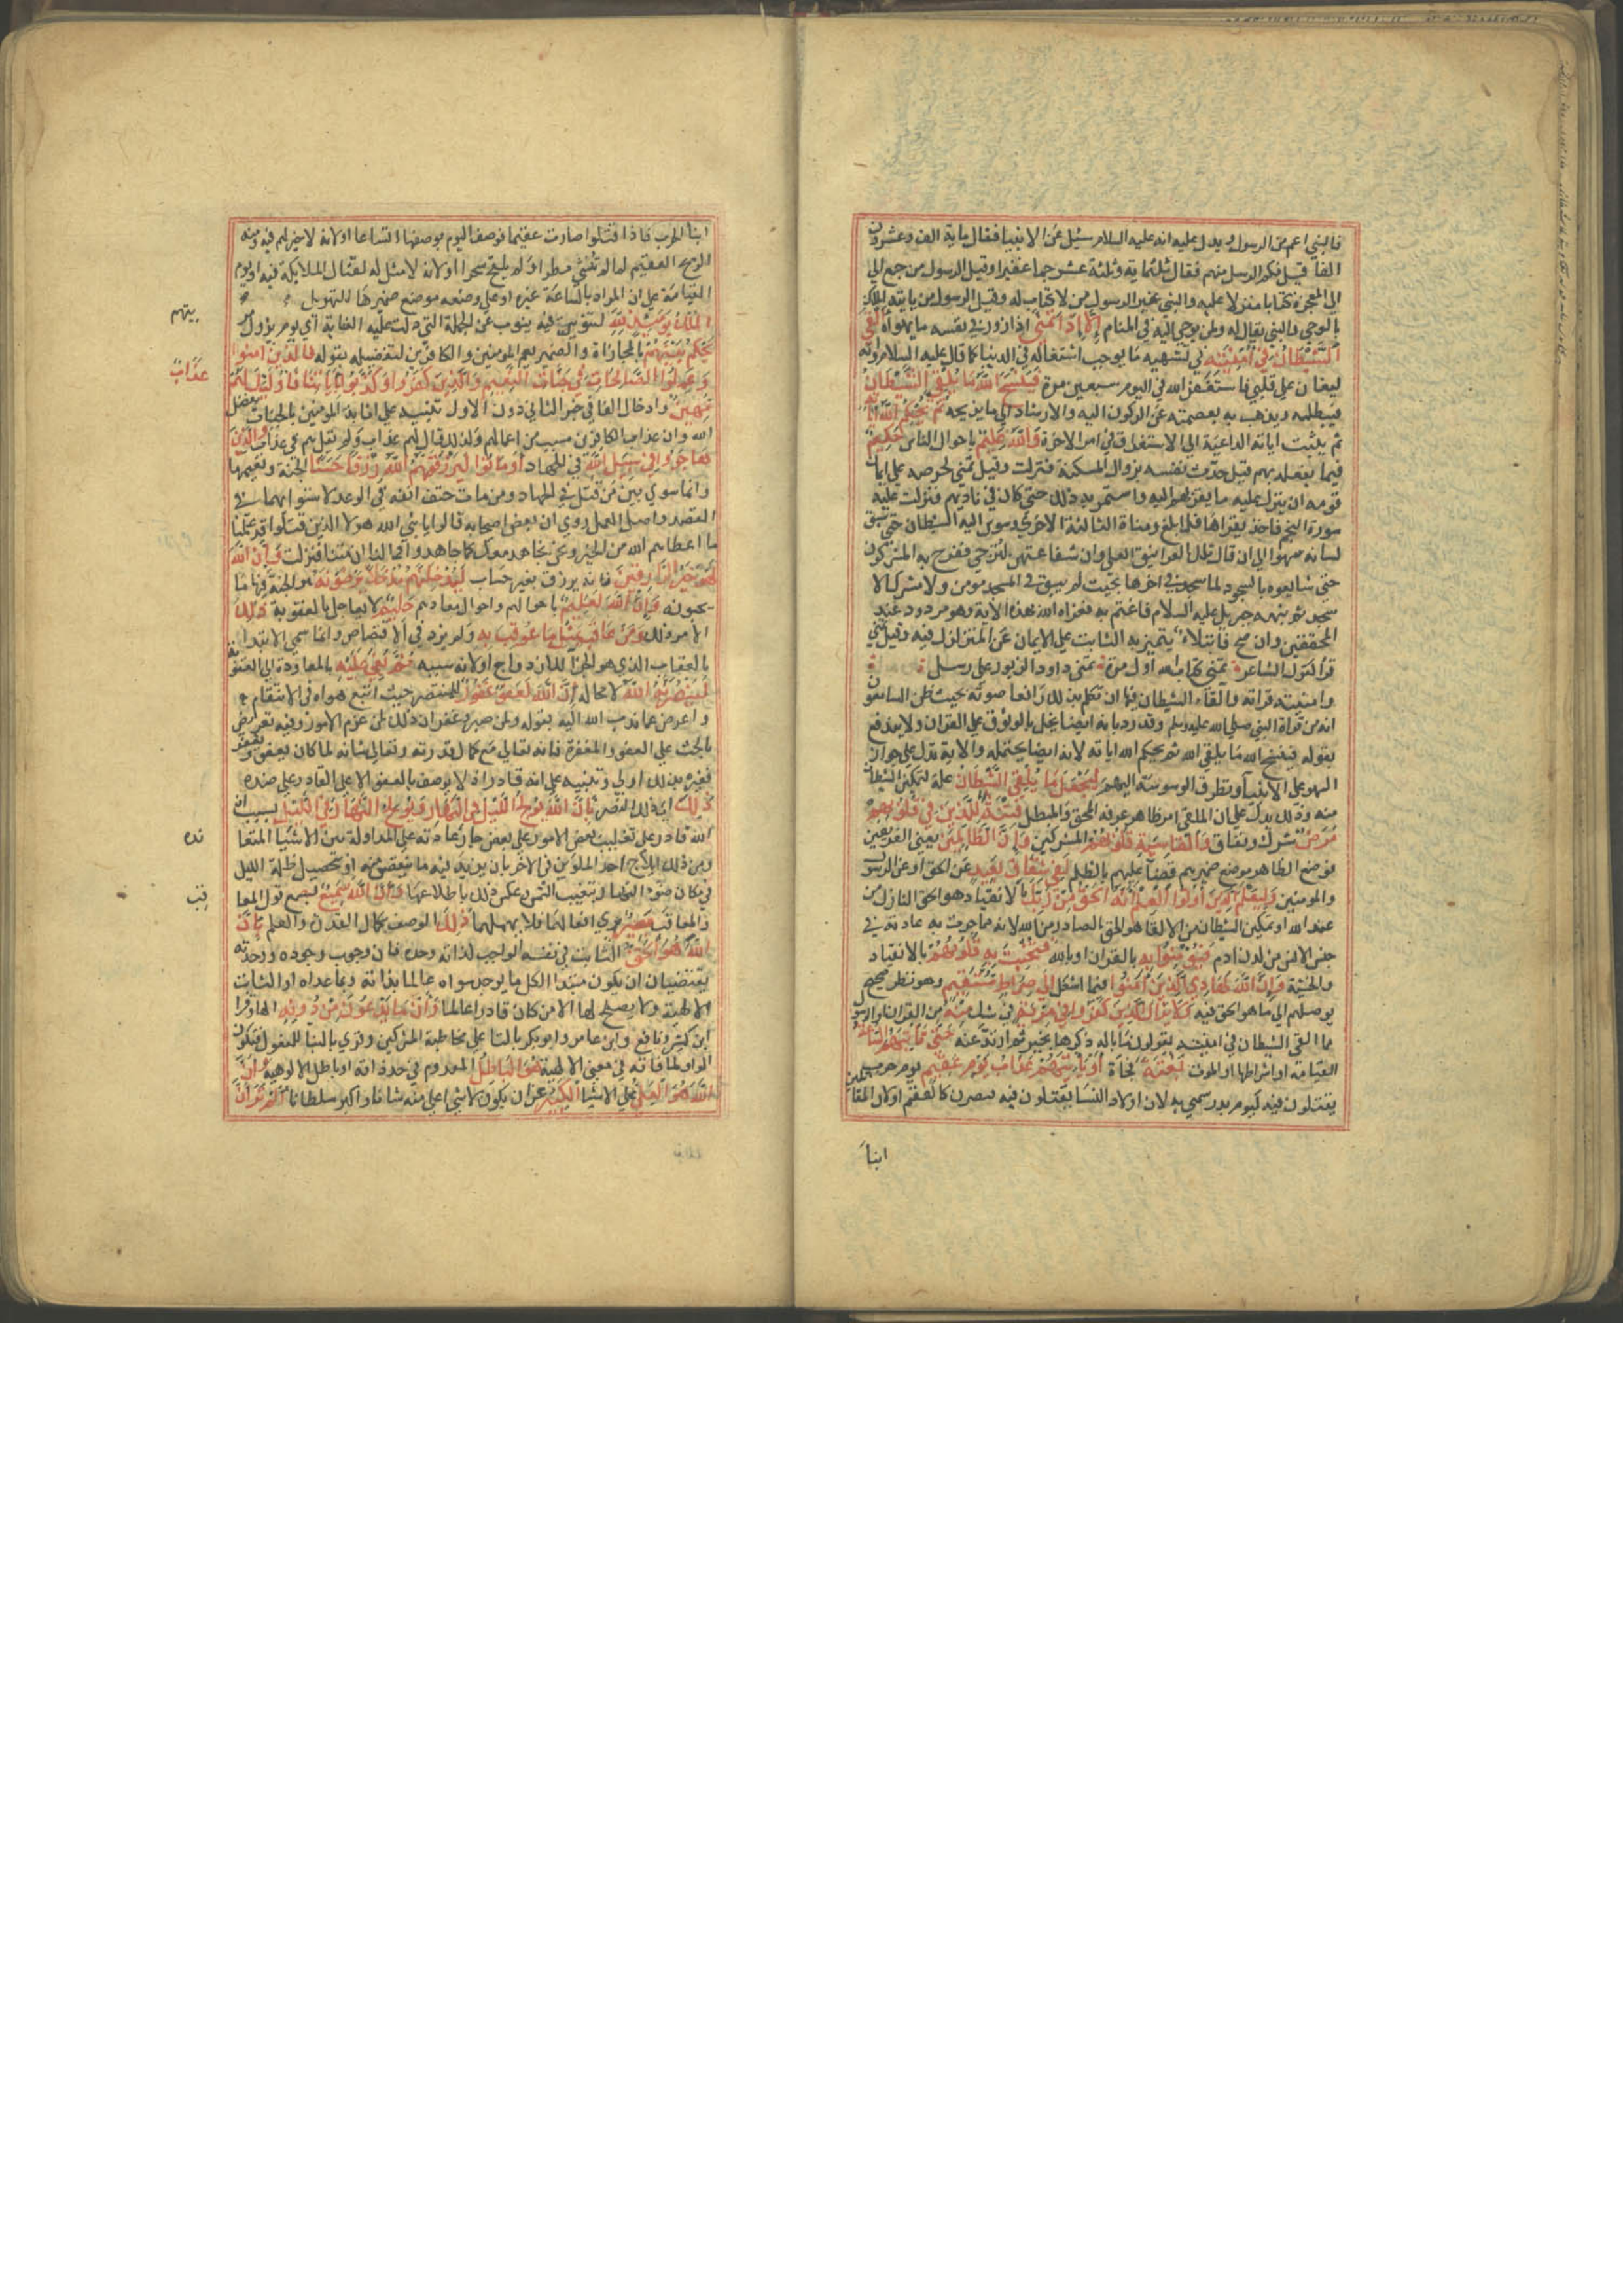 فالنبي اعم من الرسول ويدل عليه انه عليه السلام سئل عن الانبيا فقال ماية الف وعشرون
الفا قيل فكم الرسل منهم فقال ثلثماية وثلثة عشر جما غفيرا وقيل الرسول من جمع الي
الي المعجزة كتابا منزلا عليه والنبي غير الرسول من لا كتاب له وقيل الرسول من ياتيه الملك
بالوحي والنبي يقال له ولمن يوحي اليه في المنام إِلَّا إِذَا تَمَنَّي اذا زور في نفسه ما يهواه أَلْقَي
الشَّيْطَانُ فِي أُمْنِيَّتِهِ في تشهيه ما يوجب اشتغاله في الدنيا كما قال عليه السلام وانه
ليغان علي قلبي فاستغفر الله في اليوم سبعين مرة فَيَنْسَخُ اللَّهُ مَا يُلْقِي الشَّيْطَانُ
فيبطله ويذهب به بعصمته عن الركون اليه والارشاد الي ما يزيحه ثُمَّ يُحْكِمُ اللَّهُ آيَاتِهِ
ثم يثبت اياته الداعية الي الاستغراق في امر الاخرة وَاللَّهُ عَلِيمٌ باحوال الناس حَكِيمٌ
فيما يفعله بهم قيل حدث نفسه بزوال المسكنة فنزلت وقيل تمني لحرصه علي ايمان
قومه ان ينزل عليه ما يقربهم اليه واستمر به ذلك حتي كان في ناديهم فنزلت عليه
سورة النجم فاخذ يقراها فلما بلغ ومناة الثالثة الاخري وسوس اليه الشيطان حتي سبق
لسانه سهوا الي ان قال تلك الغرانيق العلي وان شفاعتهن لترتجي ففرح به المشركون
حتي شايعوه بالسجود لما سجد في اخرها بحيث لم يبق في المسجد مومن ولا مشرك الا
سجد ثم نبهه جبريل عليه السلام فاغتم به فعزاه الله بهذه الاية وهو مردود عند
المحققين وان صح فابتلاء يتميز به الثابت علي الايمان عن المتزلزل فيه وقيل تمني
قرا كقول الشاعر تمني كتاب الله اول مرة تمني داود الزبور علي رسل
وامنيته قراته والقاء الشيطان فيها ان تكلم بذلك رافعا صوته بحيث ظن السامعون
انه من قراة النبي صلي الله عليه وسلم وقد رد بانه ايضا يخل بالوثوق علي القران ولا يندفع
بقوله فينسخ الله ما يلقي الله ثم يحكم الله اياته لانه ايضا يحتمله والاية تدل علي جواز
السهو علي الانبيا وتطرق الوسوسة اليهم لِيَجْعَلَ مَا يُلْقِي الشَّيْطَانُ علة لتمكين الشيطان
منه وذلك يدل علي ان الملقي امر ظاهر عرفه المحق والمبطل فِتْنَةً لِلَّذِينَ فِي قُلُوبِهِمْ
مَرَضٌ شرك ونفاق وَالْقَاسِيَةِ قُلُوبُهُمْ المشركين وَإِنَّ الظَّالِمِينَ يعني الفريقين
فوضع الظاهر موضع ضميرهم قضا عليهم بالظلم لَفِي شِقَاقٍ بَعِيدٍ عن الحق او عن الرسول
والمومنين وَلِيَعْلَمَ الَّذِينَ أُوتُوا الْعِلْمَ أَنَّهُ الْحَقُّ مِنْ رَبِّكَ ان القران هو الحق النازل من
عند الله او تمكين الشيطان من الالقا هو الحق الصادر من الله لانه مما جرت به عادته في
جنس الانس من لدن ادم فَيُؤْمِنُوا بِهِ بالقران او بالله فَتُخْبِتَ لَهُ قُلُوبُهُمْ بالانقياد
والخشية وَإِنَّ اللَّهَ لَهَادِي الَّذِينَ آمَنُوا فيما اشكل إِلَي صِرَاطٍ مُسْتَقِيمٍ وهو نظر صحيح
يوصلهم الي ما هو الحق فيه وَلَا يَزَالُ الَّذِينَ كَفَرُوا فِي مِرْيَةٍ في شك مِنْهُ من القران او الرسول
مما القي الشيطان في امنيته يقولون ما باله ذكرها بخير ثم ارتد عنه حَتَّي تَأْتِيَهُمُ السَّاعَةُ
القيامة او اشراطها او الموت بَغْتَةً فجاة أَوْ يَأْتِيَهُمْ عَذَابُ يَوْمٍ عَقِيمٍ يوم حرب
يقتلون فيه كيوم بدر سمي به لان اولاد النسا يقتلون فيه فيصرن كالعقم او لان المقاتلين
ابنا
ابنا الحرب فاذا قتلوا صارت عقيما فوصف اليوم بوصفها اتساعا او لانه لا خير لهم فيه ومنه
الريح العقيم لما لم تنشي مطرا ولم يلقح شجرا او لانه لا مثل له لقتال الملايكة فيه او يوم
القيامة علي ان المراد بالساعة غيره او علي وضعه موضع ضميرها للتهويل
الْمُلْكُ يَوْمَئِذٍ لِلَّهِ التنوين فيه ينوب عن الجملة التي دلت عليه الغاية اي يوم يزول
يَحْكُمُ بَيْنَهُمْ بالمجازاة والضمير يعم المومنين والكافرين لتفضيله بقوله فَالَّذِينَ آمَنُوا
بينهم
وَعَمِلُوا الصَّالِحَاتِ فِي جَنَّاتِ النَّعِيمِ وَالَّذِينَ كَفَرُوا وَكَذَّبُوا بِآيَاتِنَا فَأُولَئِكَ لَهُمْ
عَذَابٌ
مُهِينٌ وادخال الفا في خبر الثاني دون الاول تنبيه علي ان اثابة المومنين بالجنات تفضل
الله وان عذاب الكافرين مسبب من اعمالهم ولذلك قال لهم عذاب ولم يقل هم في عذاب وَالَّذِينَ
هَاجَرُوا فِي سَبِيلِ اللَّهِ في الجهاد أَوْ مَاتُوا لَيَرْزُقَنَّهُمُ اللَّهُ رِزْقًا حَسَنًا الجنة ونعيمها
وانما سوي بين من قتل في الجهاد ومن مات حتف انفه في الوعد لاستوائهما في
القصد واصل العمل روي ان بعض اصحابه قالوا يا نبي الله هولا الذين قتلوا قد علمنا
ما اعطاهم الله من الخير ونحن نجاهد معك كما جاهدوا فما لنا ان متنا فنزلت وَإِنَّ اللَّهَ
لَهُوَ خَيْرُ الرَّازِقِينَ فانه يرزق بغير حساب لَيُدْخِلَنَّهُمْ مُدْخَلًا يَرْضَوْنَهُ هو الجنة فيها ما
يحبونه وَإِنَّ اللَّهَ لَعَلِيمٌ باحوالهم واحوال معاديهم حَلِيمٌ لا يعاجل بالعقوبة ذَلِكَ
الامر ذلك وَمَنْ عَاقَبَ بِمِثْلِ مَا عُوقِبَ بِهِ ولم يزد في الاقتصاص وانما سمي الابتدا
بالعقاب الذي هو الجزا للازدواج او لانه سببه ثُمَّ بُغِيَ عَلَيْهِ بالمعاودة الي العقوبة
لَيَنْصُرَنَّهُ اللَّهُ لا محالة إِنَّ اللَّهَ لَعَفُوٌّ غَفُورٌ للمنتصر حيث اتبع هواه في الانتقام
واعرض عما ندب الله اليه بقوله ولمن صبر وغفر ان ذلك لمن عزم الامور وفيه تعريض
بالحث علي العفو والمغفرة فانه تعالي مع كمال قدرته وتعالي شانه لما كان يعفو ويغفر
فغيره بذلك اولي وتنبيه علي انه قادر اذ لا يوصف بالعفو الا علي القادر علي ضده
ذَلِكَ اي ذلك النصر بِأَنَّ اللَّهَ يُولِجُ اللَّيْلَ فِي النَّهَارِ وَيُولِجُ النَّهَارَ فِي اللَّيْلِ بسبب ان
الله قادر علي تغليب بعض الامور علي بعض جار عادته علي المداولة بين الاشيا المتعا
نده
ومن ذلك ايلاج احد الملوين في الاخر بان يزيد فيه ما ينقص منه او بتحصيل ظلمة الليل
في مكان ضوء النهار وتغييب الشمس وعكس ذلك باطلاعها وَأَنَّ اللَّهَ سَمِيعٌ يسمع قول المعا
قب
والمعاقب بَصِيرٌ يري افعالهما فلا يهملهما ذَلِكَ الوصف بكمال القدرة والعلم بِأَنَّ
اللَّهَ هُوَ الْحَقُّ الثابت في نفسه الواجب لذاته وحده فان وجوب وجوده ووحدته
يقتضيان ان يكون مبدا لكل ما يوجد سواه عالما بذاته وبما عداه او الثابت
الالهية ولا يصلح لها الا من كان قادرا عالما وَأَنَّ مَا يَدْعُونَ مِنْ دُونِهِ الها وقرا
ابن كثير ونافع وابن عامر وابو بكر بالتا علي مخاطبة المشركين وقري بالبنا للمفعول فتكون
الواو لما فانه في معني الالهة هُوَ الْبَاطِلُ المعدوم في حد ذاته او باطل الالوهية وَأَنَّ
اللَّهَ هُوَ الْعَلِيُّ علي الاشيا الْكَبِيرُ عن ان يكون لا شي اعلي منه شانا واكبر سلطانا أَلَمْ تَرَ أَنَّ